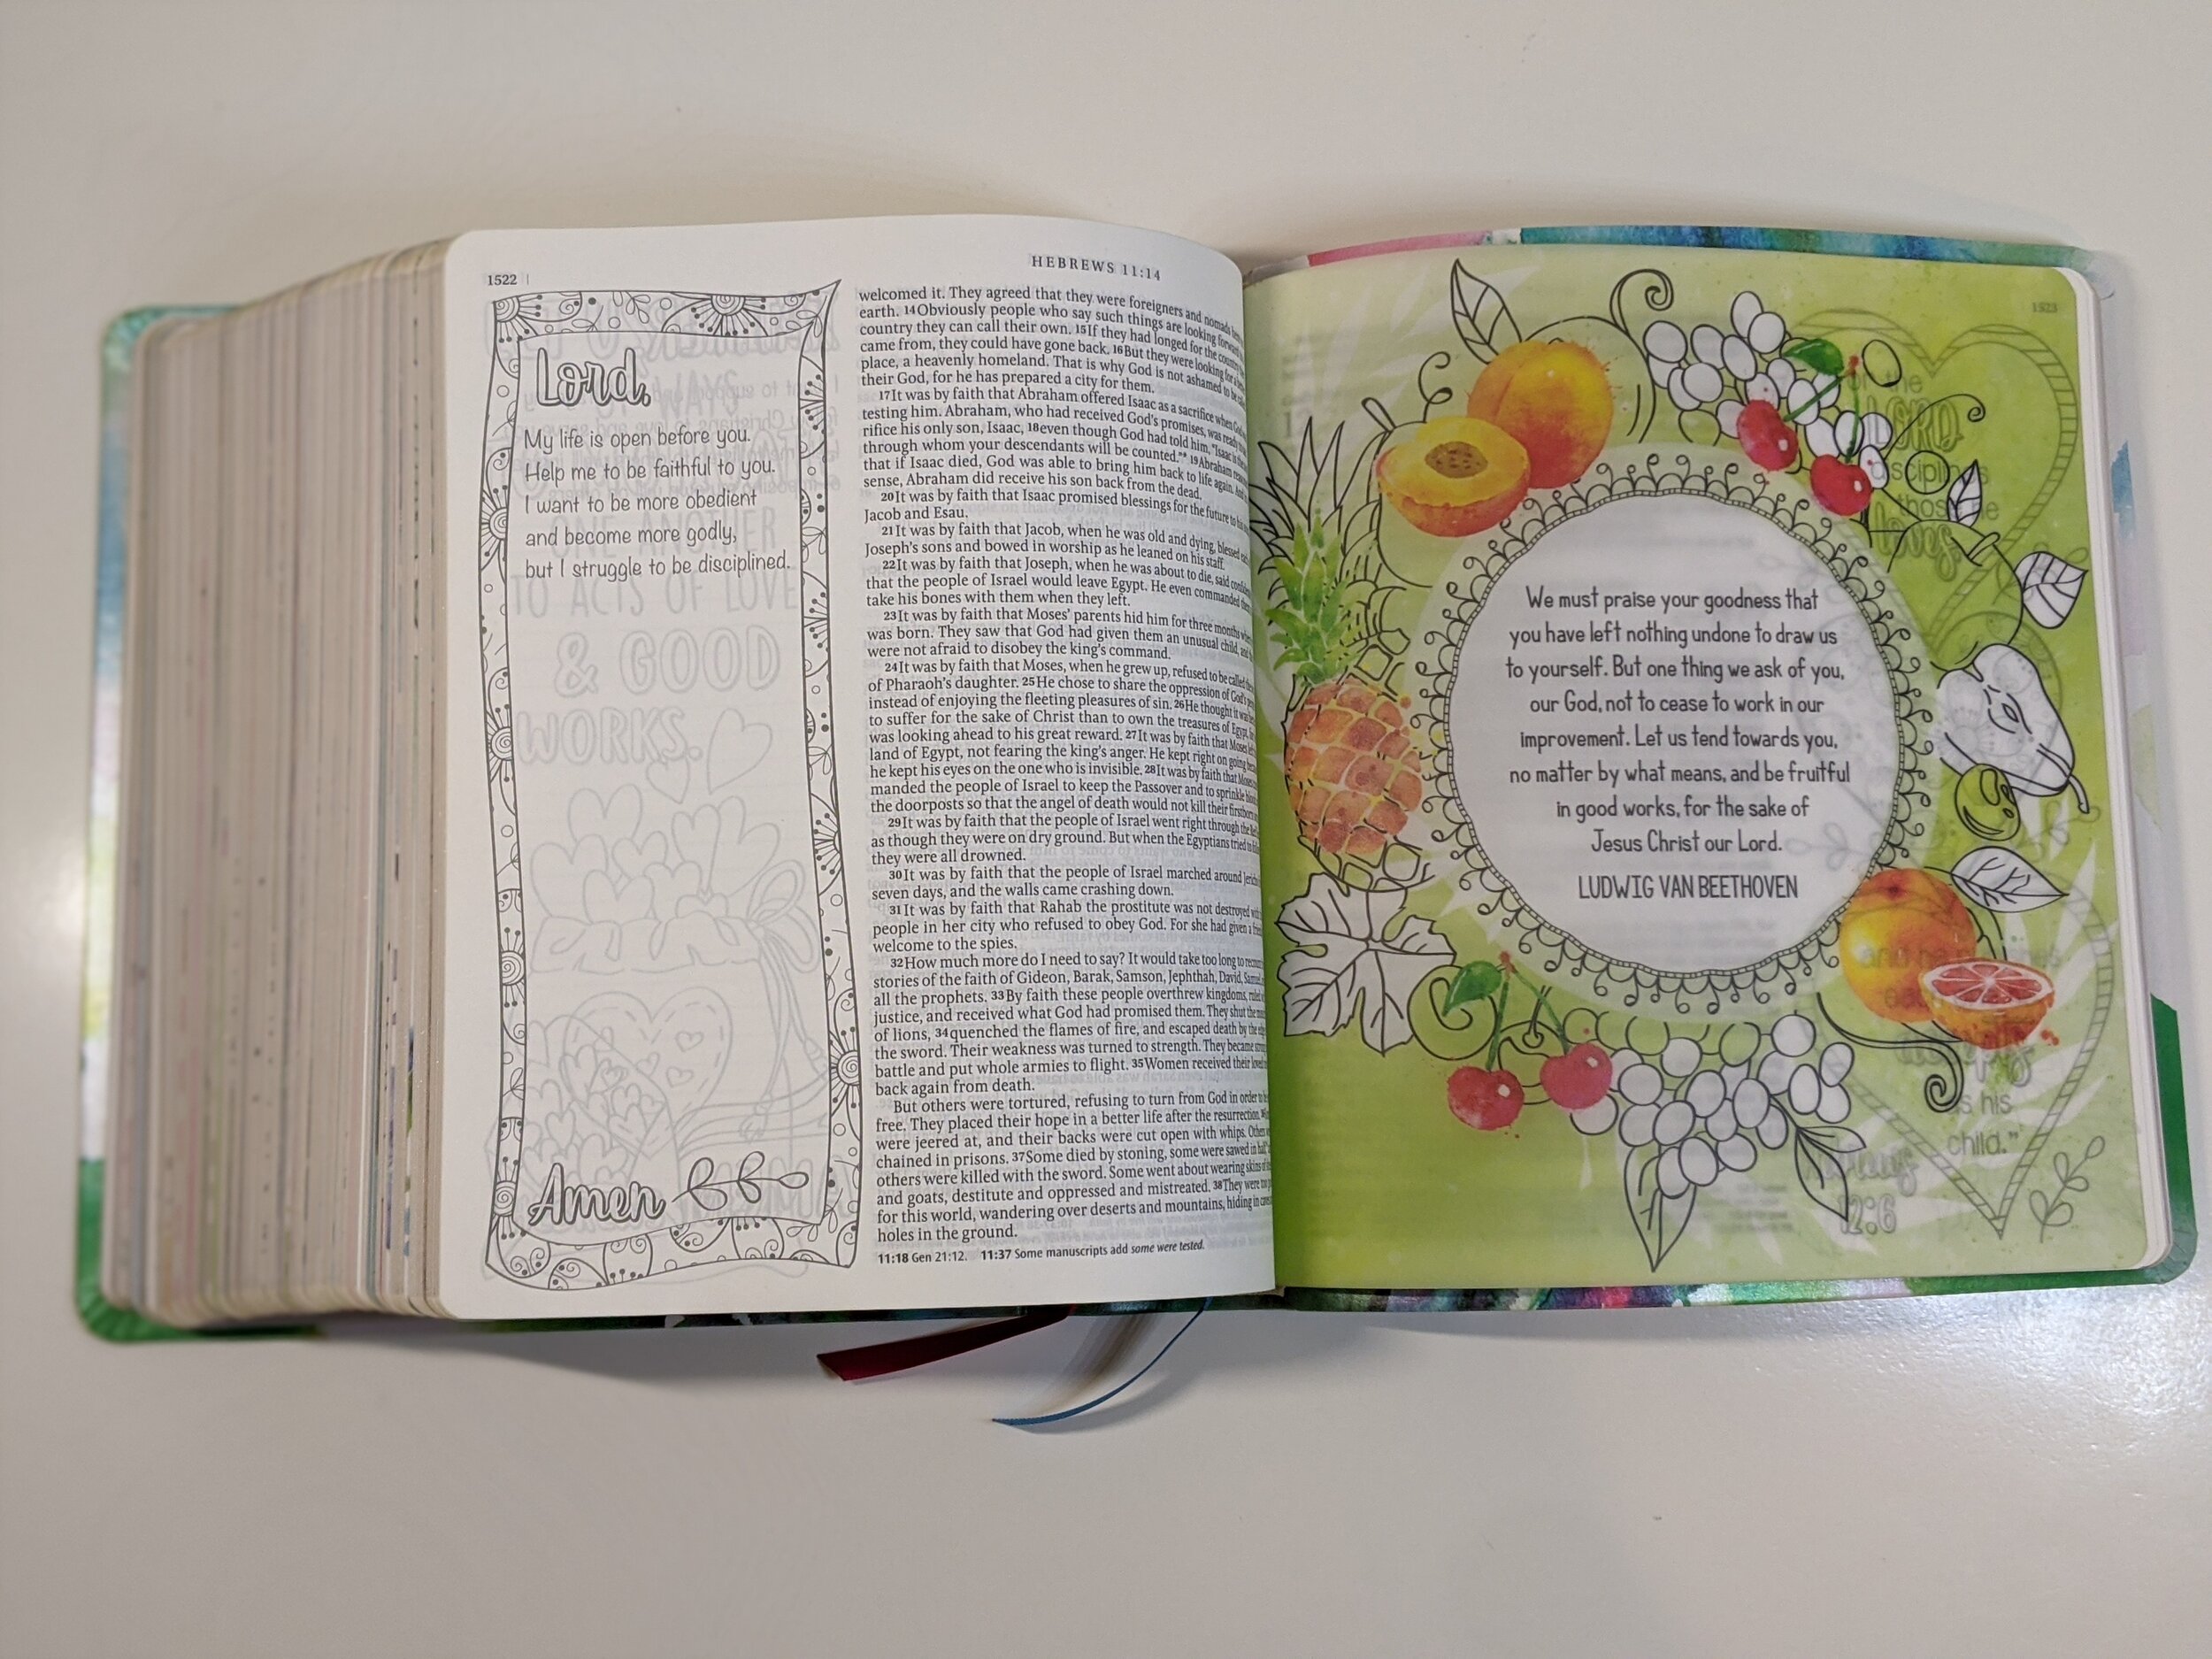 1522
HEBREWS 11:14
Lord,
My life is open before you.
Help me to be faithful to you.
I want to be more obedient
and become more godly,
but I struggle to be disciplined.
TO ACTS OF LOVE
& GOOD
WORKS.
Amen
welcomed it. They agreed that they were foreigners and nomads here
earth. 14Obviously people who say such things are looking forward
country they can call their own. 15If they had longed for the country
came from, they could have gone back. 16But they were looking for a
place, a heavenly homeland. That is why God is not ashamed to be
their God, for he has prepared a city for them.
17It was by faith that Abraham offered Isaac as a sacrifice when God
testing him. Abraham, who had received God's promises, was ready
rifice his only son, Isaac, 18even though God had told him, "Isaac is the
through whom your descendants will be counted."* 19Abraham
that if Isaac died, God was able to bring him back to life again. And
sense, Abraham did receive his son back from the dead.
20It was by faith that Isaac promised blessings for the future to his
Jacob and Esau.
21It was by faith that Jacob, when he was old and dying, blessed
Joseph's sons and bowed in worship as he leaned on his staff.
22It was by faith that Joseph, when he was about to die, said
that the people of Israel would leave Egypt. He even commanded
take his bones with them when they left.
23It was by faith that Moses' parents hid him for three months
was born. They saw that God had given them an unusual child, and
were not afraid to disobey the king's command.
24It was by faith that Moses, when he grew up, refused to be called
of Pharaoh's daughter. 25He chose to share the oppression of God's
instead of enjoying the fleeting pleasures of sin. 26He thought it was
to suffer for the sake of Christ than to own the treasures of Egypt,
was looking ahead to his great reward. 27It was by faith that Moses
land of Egypt, not fearing the king's anger. He kept right on going
he kept his eyes on the one who is invisible. 28It was by faith that Moses
manded the people of Israel to keep the Passover and to sprinkle
the doorposts so that the angel of death would not kill their firstborn
29It was by faith that the people of Israel went right through the
as though they were on dry ground. But when the Egyptians tried to
they were all drowned.
30It was by faith that the people of Israel marched around Jericho
seven days, and the walls came crashing down.
31It was by faith that Rahab the prostitute was not destroyed
people in her city who refused to obey God. For she had given a
welcome to the spies.
32How much more do I need to say? It would take too long to
stories of the faith of Gideon, Barak, Samson, Jephthah, David, Samuel,
all the prophets. 33By faith these people overthrew kingdoms, ruled
justice, and received what God had promised them. They shut the
of lions, 34quenched the flames of fire, and escaped death by the
the sword. Their weakness was turned to strength. They became
battle and put whole armies to flight. 35Women received their loved
back again from death.
But others were tortured, refusing to turn from God in order to
free. They placed their hope in a better life after the resurrection.
were jeered at, and their backs were cut open with whips. Others
chained in prisons. 37Some died by stoning, some were sawed in half,
others were killed with the sword. Some went about wearing skins of
and goats, destitute and oppressed and mistreated. 38They were
for this world, wandering over deserts and mountains, hiding in
holes in the ground.
11:18 Gen 21:12. 11:37 Some manuscripts add some were tested.
1523
We must praise your goodness that
you have left nothing undone to draw us
to yourself. But one thing we ask of you,
our God, not to cease to work in our
improvement. Let us tend towards you,
no matter by what means, and be fruitful
in good works, for the sake of
Jesus Christ our Lord.
LUDWIG VAN BEETHOVEN
the
LORD
disciplines
those he
loves
is his
child."
12:6